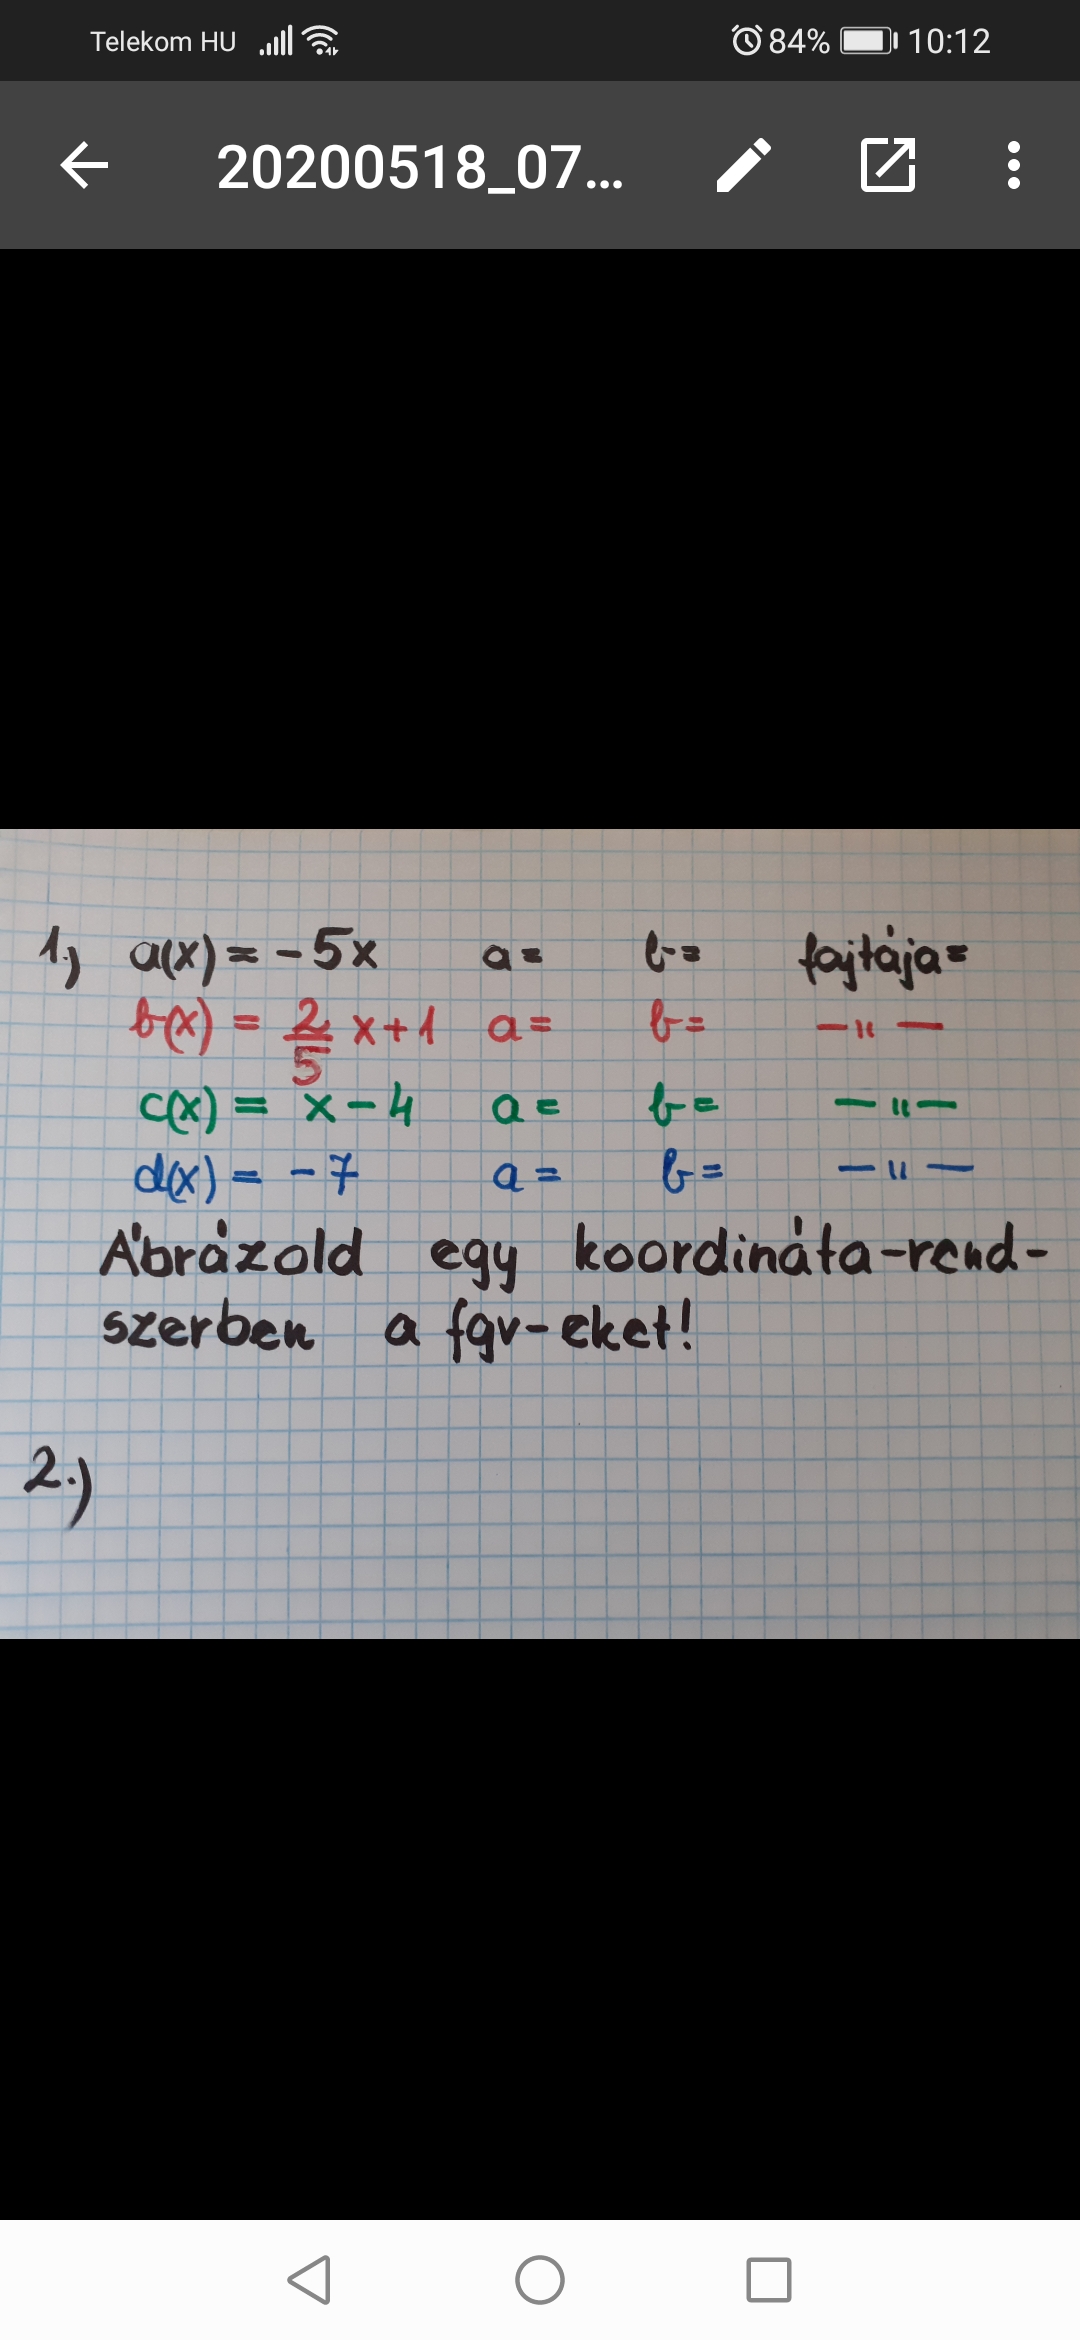 Telekom HU 84% 10:12
20200518_07...
1.) a(x) = -5x a= b= fajtája=
b(x) = 2/5 x+1 a= b= -"-
c(x) = x-4 a= b= -"-
d(x) = -7 a= b= -"-
Ábrázold egy koordináta-rend-
szerben a fgv-eket!
2.)